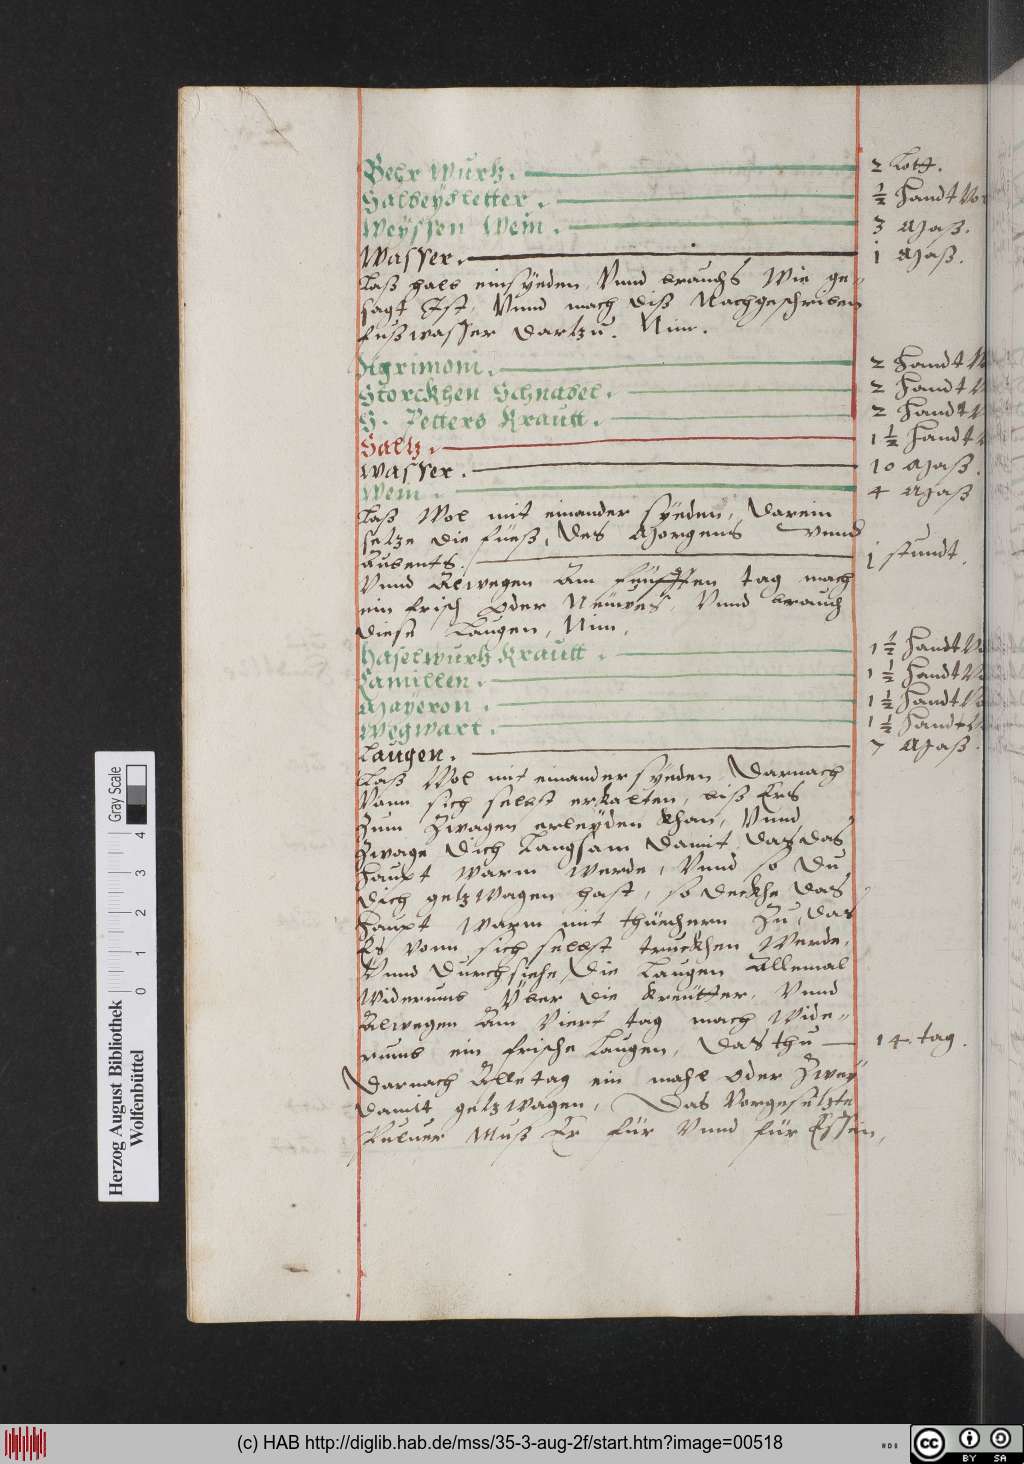 Behr Wurtz. 2 Lott.
Salbeybletter. ½ Handt Vo
Weyssen Wein. 3 Maß.
Wasser. 1 Maß.
Laß halb einsyeden Vnnd brauchs Wie ge-
sagt Ist, Vnnd mach diß Nachgeschriben
Fußwasser dartzu. Nim.
Agrimoni. 2 Handt V
Storckhen Schnabel. 2 Handt V
S. Petters Krautt. 2 Handt V
Saltz. 1½ Handt V
Wasser. 10 Maß.
Wein. 4 Maß
Laß Wol mit einander syeden, darein
setze die Füeß, des Morgens Vnnd
Aubents. 1 stundt.
Vnnd Alwegen Am tag mach
ein frisch oder Neuwes, Vnnd brauch
diese Laugen, Nim.
Haselwurtz Krautt. 1½ Handt Vo
Camillen. 1½ Handt Vo
Mayeron. 1½ Handt Vo
Wegwart. 1½ Handt V
Laugen. 7 Maß.
Laß Wol mit einander syeden Darnach
Vonn sich selbst erkalten, biß Ers
Zum Zwagen erleyden khan, Vnnd
Zwage dich Langsam damit, daz das
Haupt warm werde, Vnnd so Du
dich getzwagen hast, so deckhe das
Haupt warm mit thüechern Zu, das
Es vonn sich selbst truckhen Werde,
Vnnd durchsiehe die Laugen Allemal
Widerumb Vber die Kreutter, Vnnd
Alwegen Am Viert tag mach Wide-
rumb ein frische Laugen, Das thu 14 tag.
Darnach Alle tag ein mahl oder Zwey
damit getzwagen, Das Vorgesetzte
Puluer Muß Er für Vnnd für Essen,
Herzog August Bibliothek
Wolfenbüttel
0 1 2 3 4
Gray Scale
(c) HAB http://diglib.hab.de/mss/35-3-aug-2f/start.htm?image=00518
cc BY SA